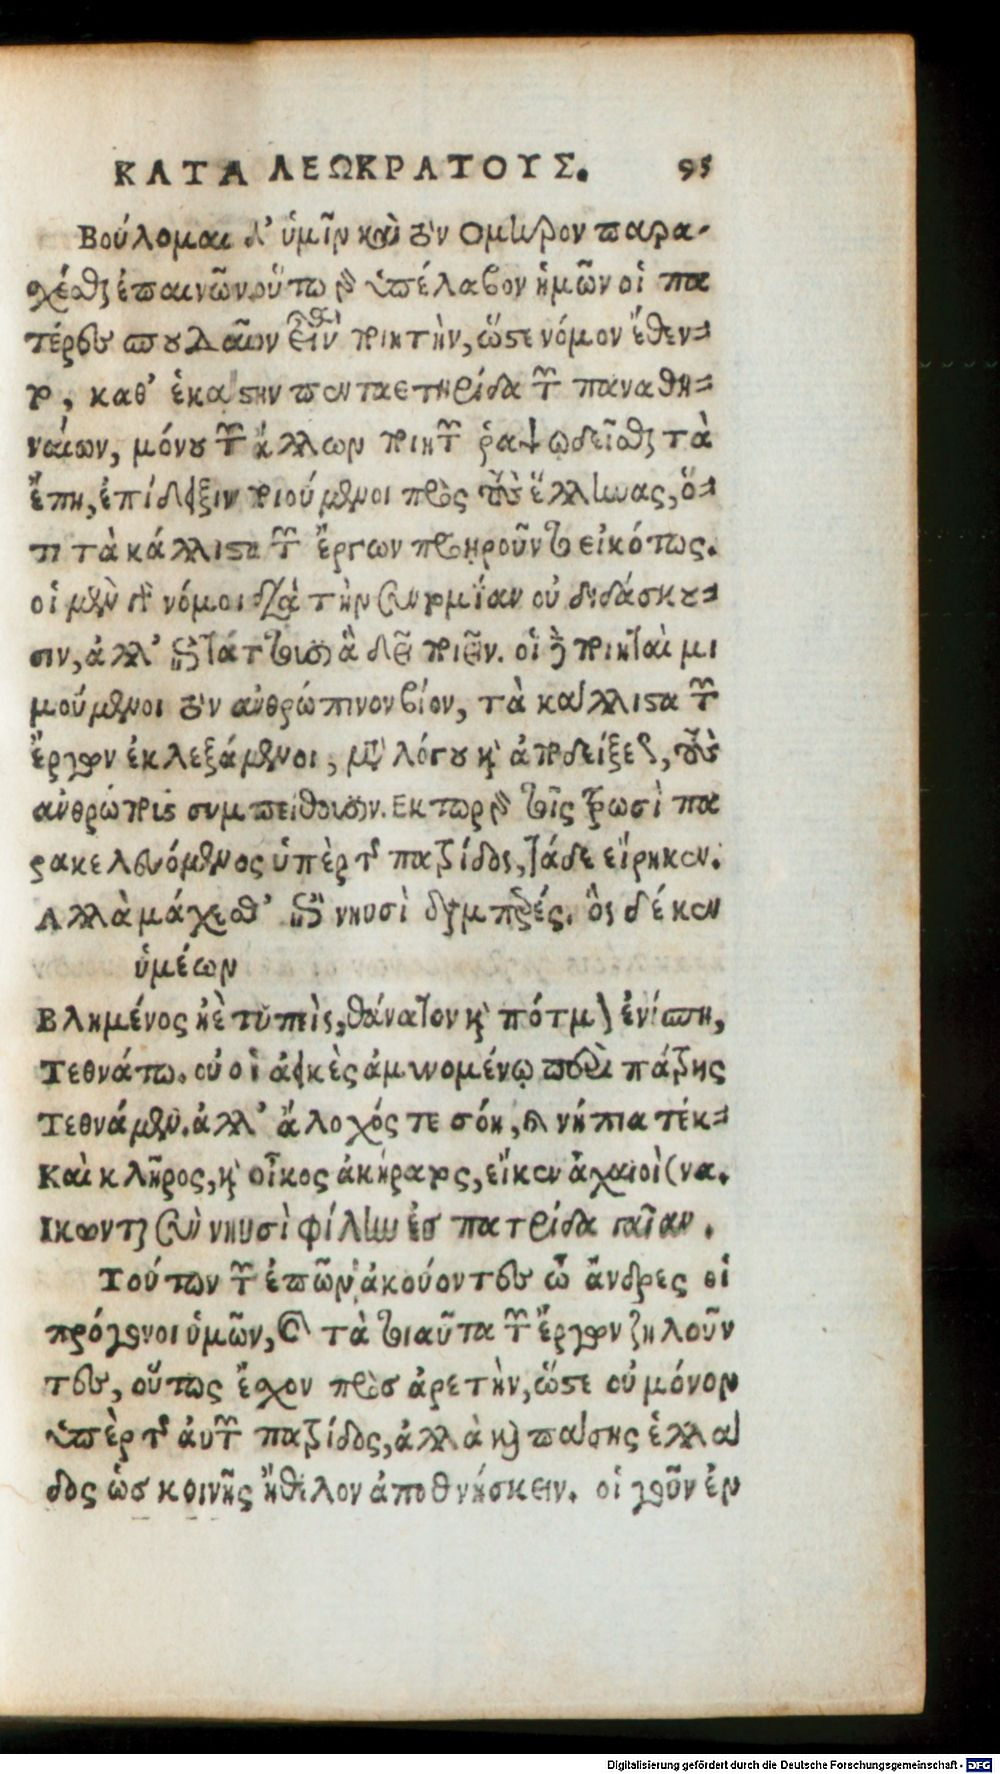 ΚΑΤΑ ΛΕΩΚΡΑΤΟΥΣ. 95
Βούλομαι δ' ὑμῖν καὶ τὸν Ομηρον παρα-
σχέσθαι ἐπαινῶν. οὕτω γὰρ ὑπέλαβον ἡμῶν οἱ πα
τέρες σπουδαῖον εἶναι ποιητὴν, ὥστε νόμον ἔθεν-
το, καθ' ἑκάστην πενταετηρίδα τῶν παναθη-
ναίων, μόνου τῶν ἄλλων ποιητῶν ῥαψῳδεῖσθαι τὰ
ἔπη, ἐπίδειξιν ποιούμενοι πρὸς τοὺς ἕλληνας, ὅ-
τι τὰ κάλλιστα τῶν ἔργων προῃροῦντο εἰκότως.
οἱ μὲν γὰρ νόμοι διὰ τὴν συντομίαν οὐ διδάσκου-
σιν, ἀλλ' ἐπιτάττουσιν ἃ δεῖ ποιεῖν. οἱ δὲ ποιηταὶ μι
μούμενοι τὸν ἀνθρώπινον βίον, τὰ κάλλιστα τῶν
ἔργων ἐκλεξάμενοι, μετὰ λόγου καὶ ἀποδείξεως, τοὺς
ἀνθρώποις συμπείθουσιν. Εκτωρ γὰρ τοῖς τρωσὶ πα
ρακελευόμενος ὑπὲρ τῆς πατρίδος, τάδε εἴρηκεν.
Αλλὰ μάχεσθ' ἐπὶ νηυσὶ διαμπερές. ὃς δέ κεν
ὑμέων
Βλημένος ἠὲ τυπεὶς, θάνατον καὶ πότμον ἐνίσπη,
Τεθνάτω. οὐ οἱ ἀεικὲς ἀμυνομένῳ περὶ πάτρης
Τεθνάμεν. ἀλλ' ἄλοχός τε σόη, καὶ νήπια τέκ-
Καὶ κλῆρος, καὶ οἶκος ἀκήρατος, εἴ κεν ἀχαιοὶ (να.
Ικωνται σὺν νηυσὶ φίλην ἐς πατρίδα γαῖαν.
Τούτων τῶν ἐπῶν ἀκούοντες ὦ ἄνδρες οἱ
πρόγονοι ὑμῶν, καὶ τὰ τοιαῦτα τῶν ἔργων ζηλοῦν
τες, οὕτως ἔσχον πρὸς ἀρετὴν, ὥστε οὐ μόνον
ὑπὲρ τῆς αὐτῶν πατρίδος, ἀλλὰ καὶ πάσης ἑλλά
δος ὡς κοινῆς ἤθελον ἀποθνήσκειν. οἱ γοῦν ἐν
Digitalisierung gefördert durch die Deutsche Forschungsgemeinschaft - DFG